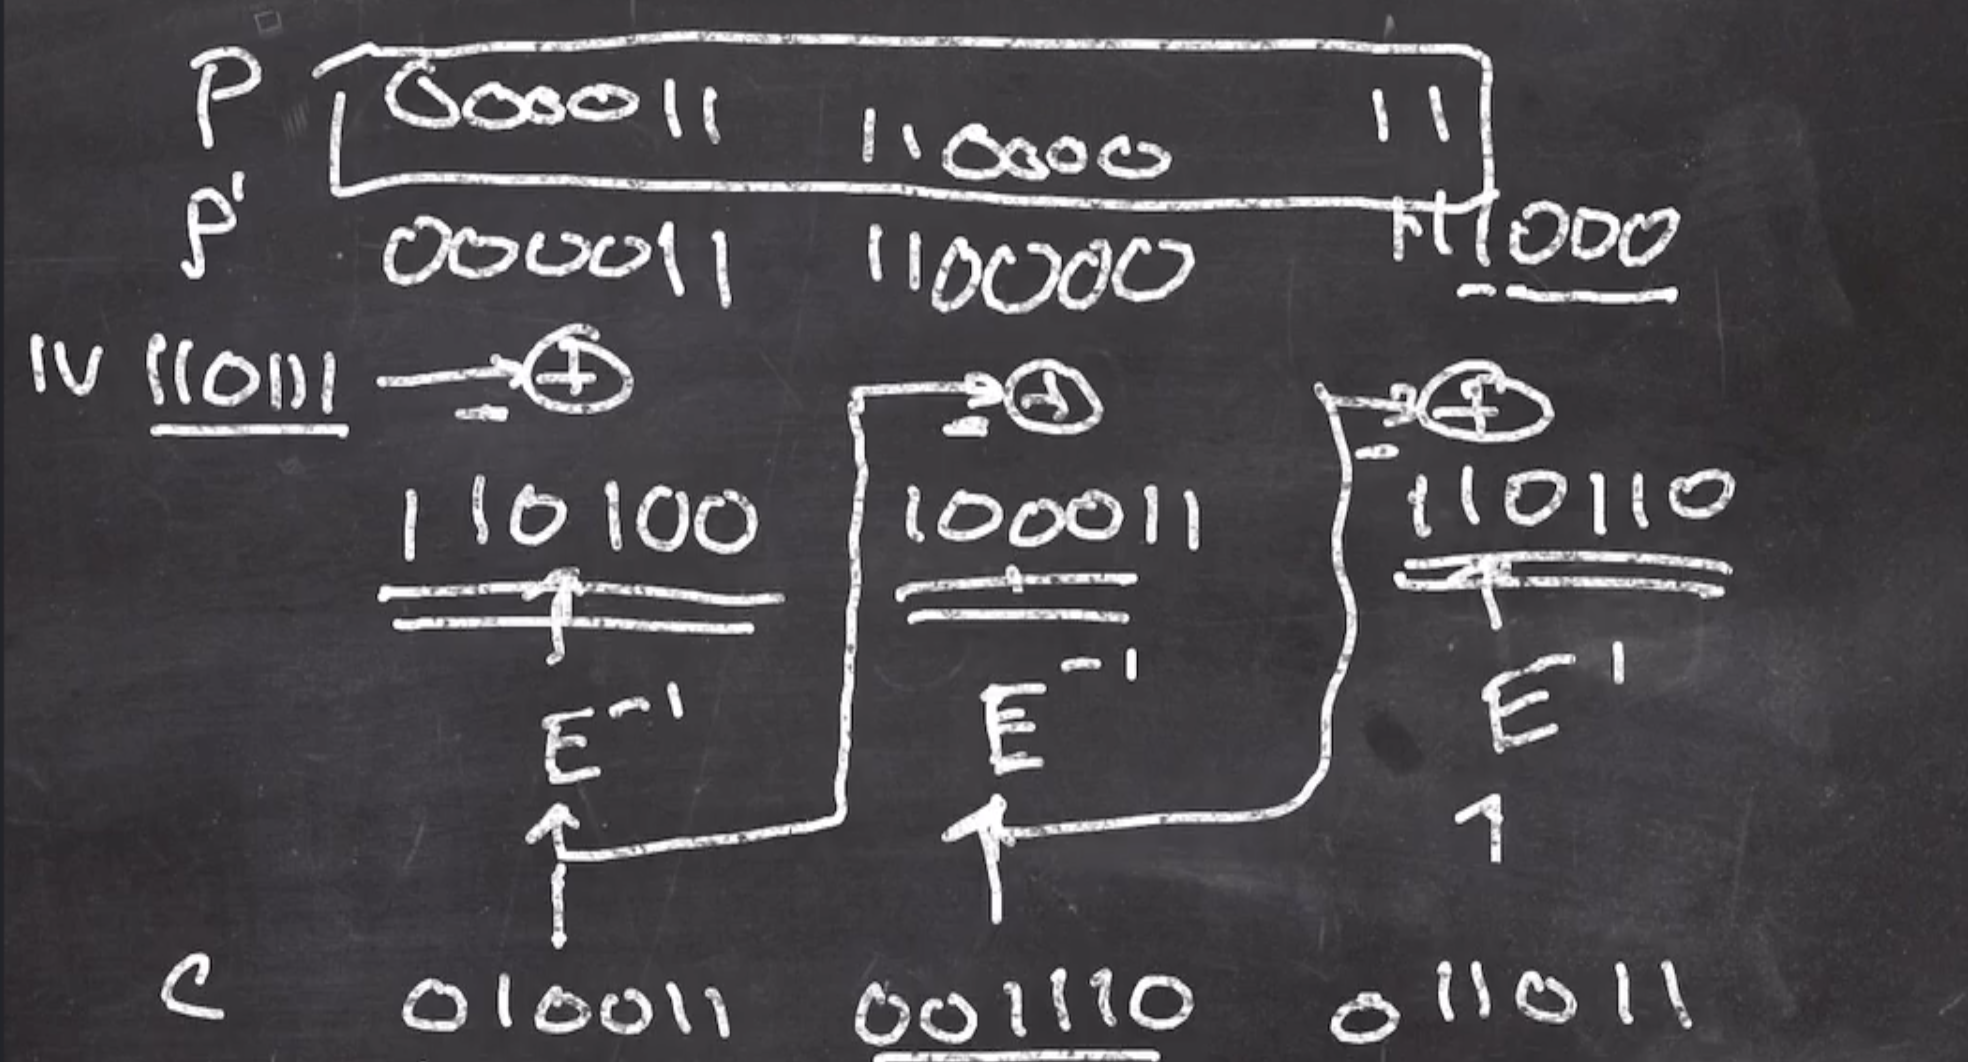 P 000011 110000 11
P' 000011 110000 111000
IV 110111 → ⊕ → ⊕ → ⊕
110100 100011 110110
E⁻¹ E⁻¹ E⁻¹
C 010011 001110 011011